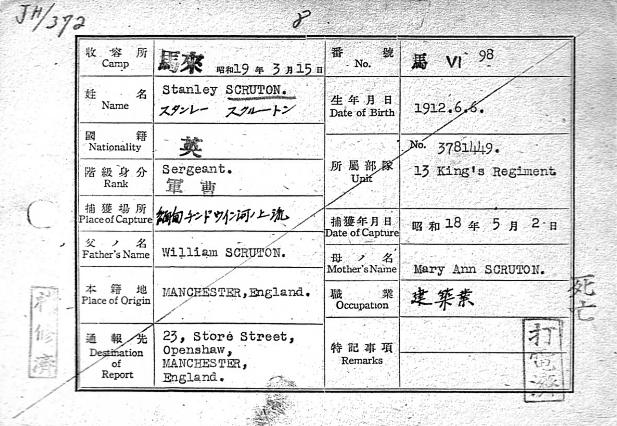 JH/372
8
收容所 Camp 馬來 昭和19年3月15日
番號 No. 馬 VI 98
姓名 Name Stanley SCRUTON.
スタンレー スクルートン
生年月日 Date of Birth 1912.6.6.
國籍 Nationality 英
階級身分 Rank Sergeant.
軍曹
所屬部隊 Unit No. 3781449.
13 King's Regiment
捕獲場所 Place of Capture 緬甸チンドウイン河ノ上流
捕獲年月日 Date of Capture 昭和18年5月2日
父ノ名 Father's Name William SCRUTON.
母ノ名 Mother's Name Mary Ann SCRUTON.
本籍地 Place of Origin MANCHESTER,England.
職業 Occupation 建築業
通報先 Destination of Report 23, Store Street,
Openshaw,
MANCHESTER,
England.
特記事項 Remarks
死亡
打電濟